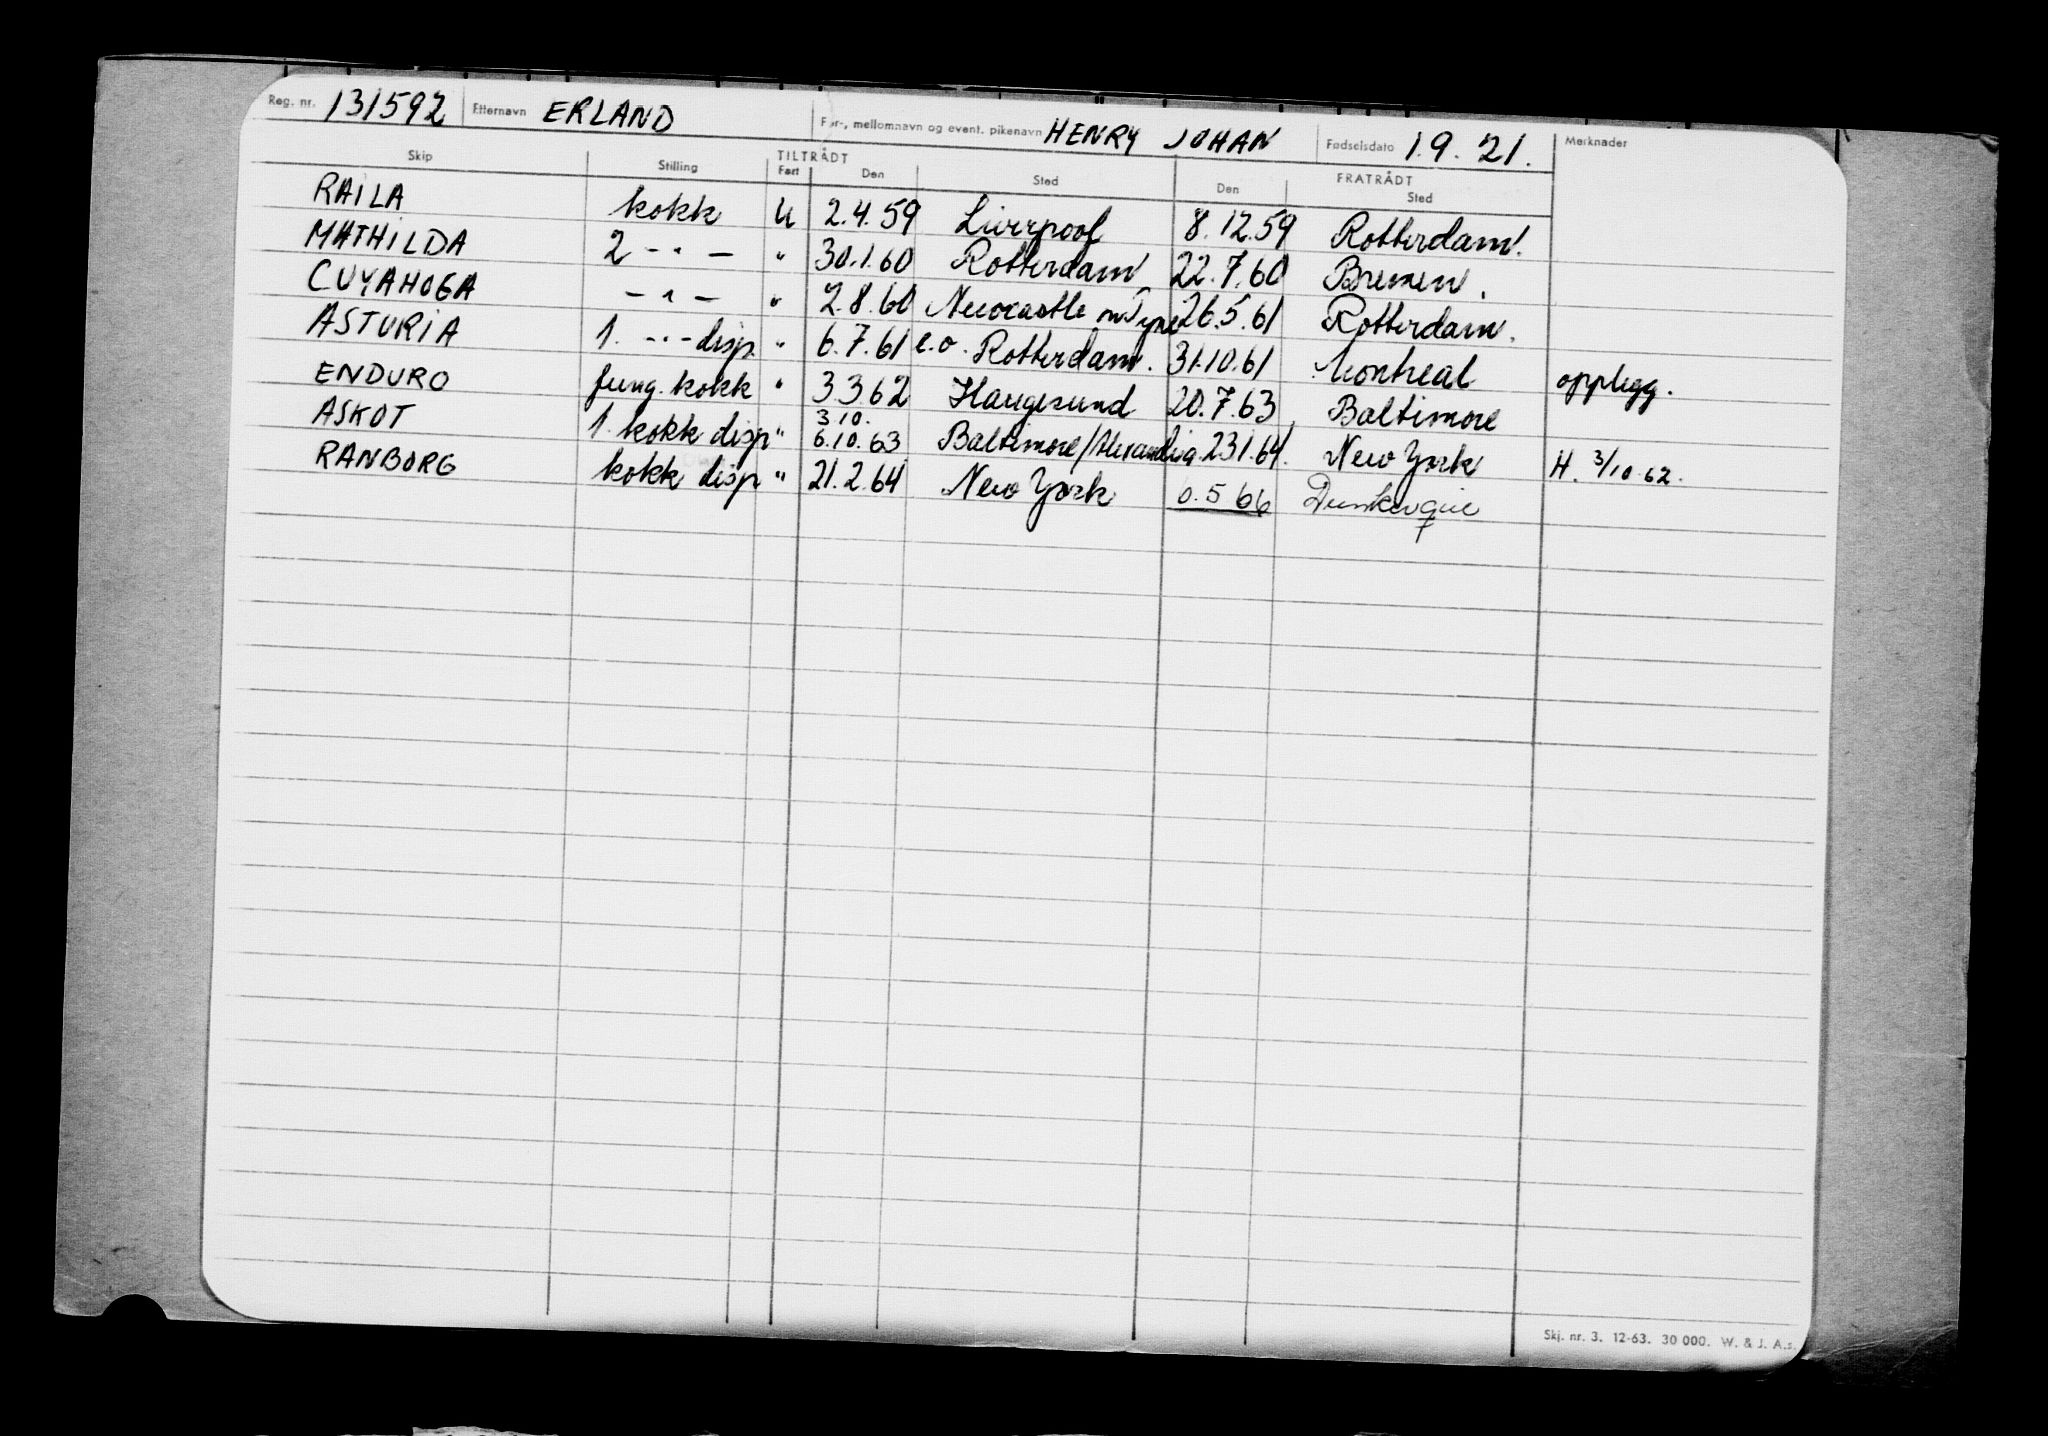 Reg. nr. 131592 Etternavn ERLAND For-, mellomnavn og event. pikenavn HENRY JOHAN Fødselsdato 1.9.21. Merknader
Skip Stilling TILTRÅDT Fart Den Sted FRATRÅDT Den Sted
RAILA kokk U 2.4.59 Liverpool 8.12.59 Rotterdam.
MATHILDA 2 - " - " 30.1.60 Rotterdam 22.7.60 Bremen.
CUYAHOGA - " - " 2.8.60 Newcastle on Tyne 26.5.61 Rotterdam.
ASTURIA 1. - " - disp " 6.7.61 e.o. Rotterdam. 31.10.61 Montreal opplegg.
ENDURO fung. kokk " 3.3.62 Haugesund 20.7.63 Baltimore
ASKOT 1. kokk disp " 3.10. 6.10.63 Baltimore/Alexandria 23.1.64. New York H. 3/10.62.
RANBORG kokk disp " 21.2.64 New York 6.5 66 Dunkerque
Skj. nr. 3. 12-63. 30 000. W. & J. A.s.